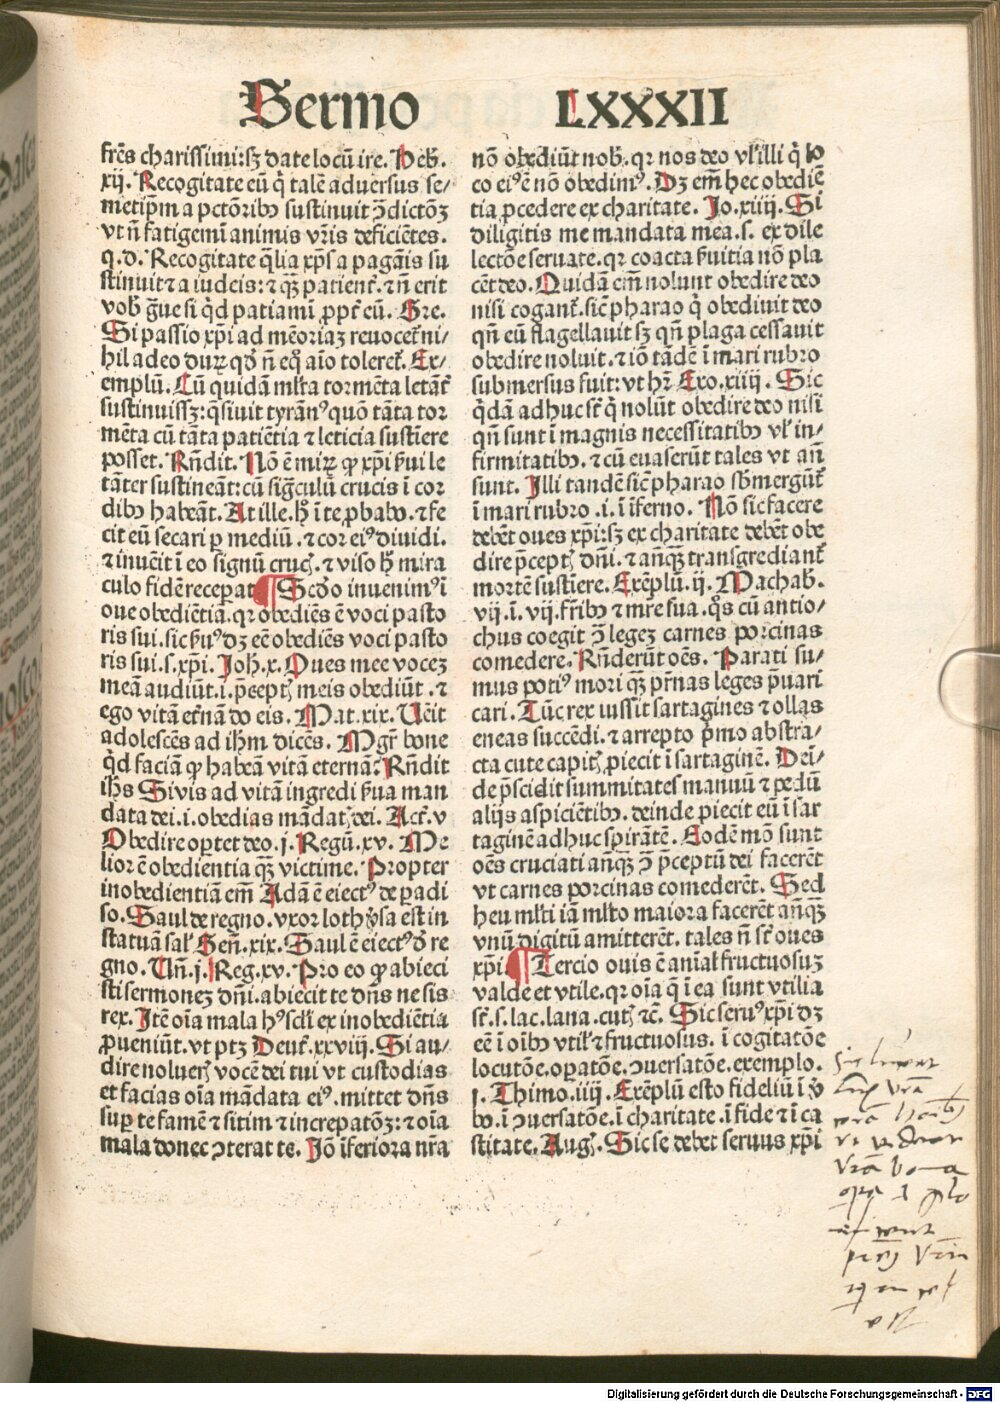 Sermo LXXXII
frēs charissimi: sꝫ date locū ire. Heb̄.
xij. Recogitate eū q̇ talē aduersus se⸗
metip̄m a pctōribꝰ sustinuit ↄ̄dictōꝫ
vt n̄ fatigemī animis vr̄is deficiētes.
q.d. Recogitate q̄lia xp̄s a pagāis su
stinuit ⁊ a iudeis: ⁊ qꝫ patient̄. ⁊ n̄ erit
vob̄ g̃ue si q̇d patiamī ꝓpt̄ eū. Gre.
Si passio xp̄i ad mēoriaꝫ reuocet̄ ni⸗
hil adeo duꝝ qd̄ n̄ eq̇ aīo toleret̄. Ex⸗
emplū. Cū quidā mlt̄a tormēta letāt̄
sustinuissꝫ: q̄siuit tyrānꝰ quō tāta tor
mēta cū tāta patiētia ⁊ leticia sustīere
posset. Rn̄dit. Nō ē miꝝ ꝙ xp̄i s̄ui le
tāter sustineāt: cū sig̃culū crucis ī cor
dibꝰ habeāt. At ille. h̄ ī te ꝓbabo. ⁊ fe
cit eū secari ꝑ mediū. ⁊ cor eiꝰ diuidi.
⁊ inuēit ī eo signū cruc̄. ⁊ viso h̄ mira
culo fidē recepat. ¶ Scd̄o inuenimꝰ ī
oue obediētiā. qꝛ obediēs ē voci pasto
ris sui. sic s̄uꝰ dꝫ eē obediēs voci pasto
ris sui. s. xp̄i. Joh. x. Oues mee voceꝫ
meā audiūt. i. p̄cept̄ meis obediūt. ⁊
ego vitā et̄nā do eis. Mat. xix. Uēit
adolescēs ad ih̄m dicēs. Mgr̄ bone
q̇d faciā ꝙ habeā vitā eternā. Rn̄dit
ih̄s Si vis ad vitā ingredi s̄ua man
data dei. i. obedias mādat̄ dei. Act̄. v
Obedire oꝑtet deo. j. Regū. xv. Me
lior ē obedientia qꝫ victime. Propter
inobedientiā em̄ Adā ē eiectꝰ de padi
so. Saul de regno. vxor loth v̄sa est in
statuā sal̄ Gen̄. xix. Saul ē eiectꝰ d̄ re
gno. Un̄. j. Reg. xv. Pro eo ꝙ abieci
sti sermoneꝫ dn̄i. abiecit te dn̄s ne sis
rex. Itē oīa mala hꝰ scl̄i ex inobediētia
ꝓueniūt. vt ptꝫ Deut̄. xxviij. Si au⸗
dire nolueris vocē dei tui vt custodias
et facias oīa mādata eiꝰ. mittet dn̄s
suꝑ te famē ⁊ sitim ⁊ increpatōꝫ: ⁊ oīa
mala donec ↄterat te. Jō īferiora nr̄a
nō obediūt nob̄. qꝛ nos deo vl̄ illi q̇ lo
co eiꝰ ē nō obedimꝰ. Dꝫ em̄ hec obediē
tia ꝓcedere ex charitate. Jo. xiiij. Si
diligitis me mandata mea. s. ex dile
lectōe seruate. qꝛ coacta s̄uitia nō pla
cēt deo. Quidā em̄ nolunt obedire deo
nisi cogant̄. sic̄ pharao q̇ obediuit deo
qn̄ eū flagellauit sꝫ qn̄ plaga cessauit
obedire noluit. ⁊ iō tādē ī mari rubro
submersus fuit: vt hr̄ Exo. xiiij. Sic
q̇dā adhuc st̄ q̇ nolūt obedire deo nisi
qn̄ sunt ī magnis necessitatibꝰ vl̄ in⸗
firmitatibꝰ. ⁊ cū euaserūt tales vt an̄
sunt. Illi tandē sic̄ pharao sb̄mergūt̄
ī mari rubro. i. ī īferno. Nō sic facere
debēt oues xp̄i: sꝫ ex charitate debēt obe
dire p̄cept̄ dn̄i. ⁊ an̄qꝫ transgrediant̄
mortē sustīere. Exēplū. ij. Machab̄.
vij. ī. vij. fr̄ibꝰ ⁊ mr̄e sua. q̇s cū antio⸗
chus coegit ↄ̄ legeꝫ carnes porcinas
comedere. Rn̄derūt oēs. Parati su⸗
mus potiꝰ mori qꝫ pr̄nas leges p̄uari
cari. Tūc rex iussit sartagines ⁊ ollas
eneas succēdi. ⁊ arrepto p̄mo abstra⸗
cta cute capit̄ ꝓiecit ī sartaginē. Deī⸗
de p̄scidit summitates manuū ⁊ pedū
alijs aspiciētibꝰ. deinde ꝓiecit eū ī sar
taginē adhuc spirātē. Eodē mō sunt
oēs cruciati an̄qꝫ ↄ̄ p̄ceptū dei facerēt
vt carnes porcinas comederēt. Sed
heu ml̄ti iā ml̄to maiora facerēt an̄qꝫ
vnū digitū amitterēt. tales n̄ st̄ oues
xp̄i. ¶ Tercio ouis ē anīal fructuosuꝫ
valde et vtile. qꝛ oīa q̄ ī ea sunt vtilia
st̄. s. lac. lana. cut̄ ⁊c̄. Sic seruꝰ xp̄i dꝫ
eē ī oībꝰ vtil̄ ⁊ fructuosus. ī cogitatōe
locutōe. oꝑatōe. ↄuersatōe. exemplo.
j. Thimo. iiij. Exēplū esto fideliū ī v̄
bo. ī ↄuersatōe. ī charitate. ī fide ⁊ ī ca
stitate. Auḡ. Sic se debet seruus xp̄i
Sic luceat
lux vr̄a
Digitalisierung gefördert durch die Deutsche Forschungsgemeinschaft - DFG